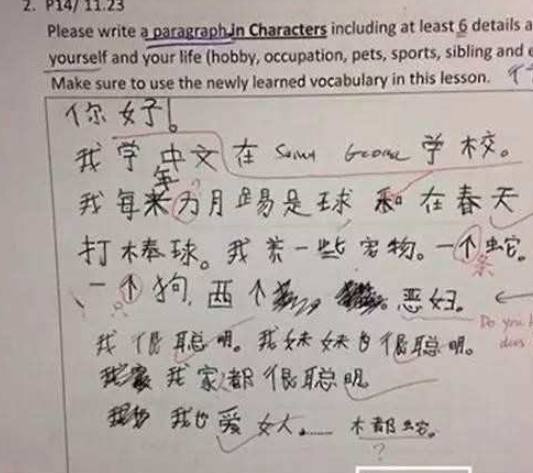 2. P14/ 11.23
Please write a paragraph in Characters including at least 6 details a
yourself and your life (hobby, occupation, pets, sports, sibling and e
Make sure to use the newly learned vocabulary in this lesson.
你好!
我学中文在 学校。
年
我每 月踢是球和在春天
打棒球。我养一些宠物。一个蛇。
条
一个狗,两个 恶妇。
Do you
does
我很聪明。我妹妹也很聪明。
我家都很聪明
我也爱女人...... 木都蛇。
?